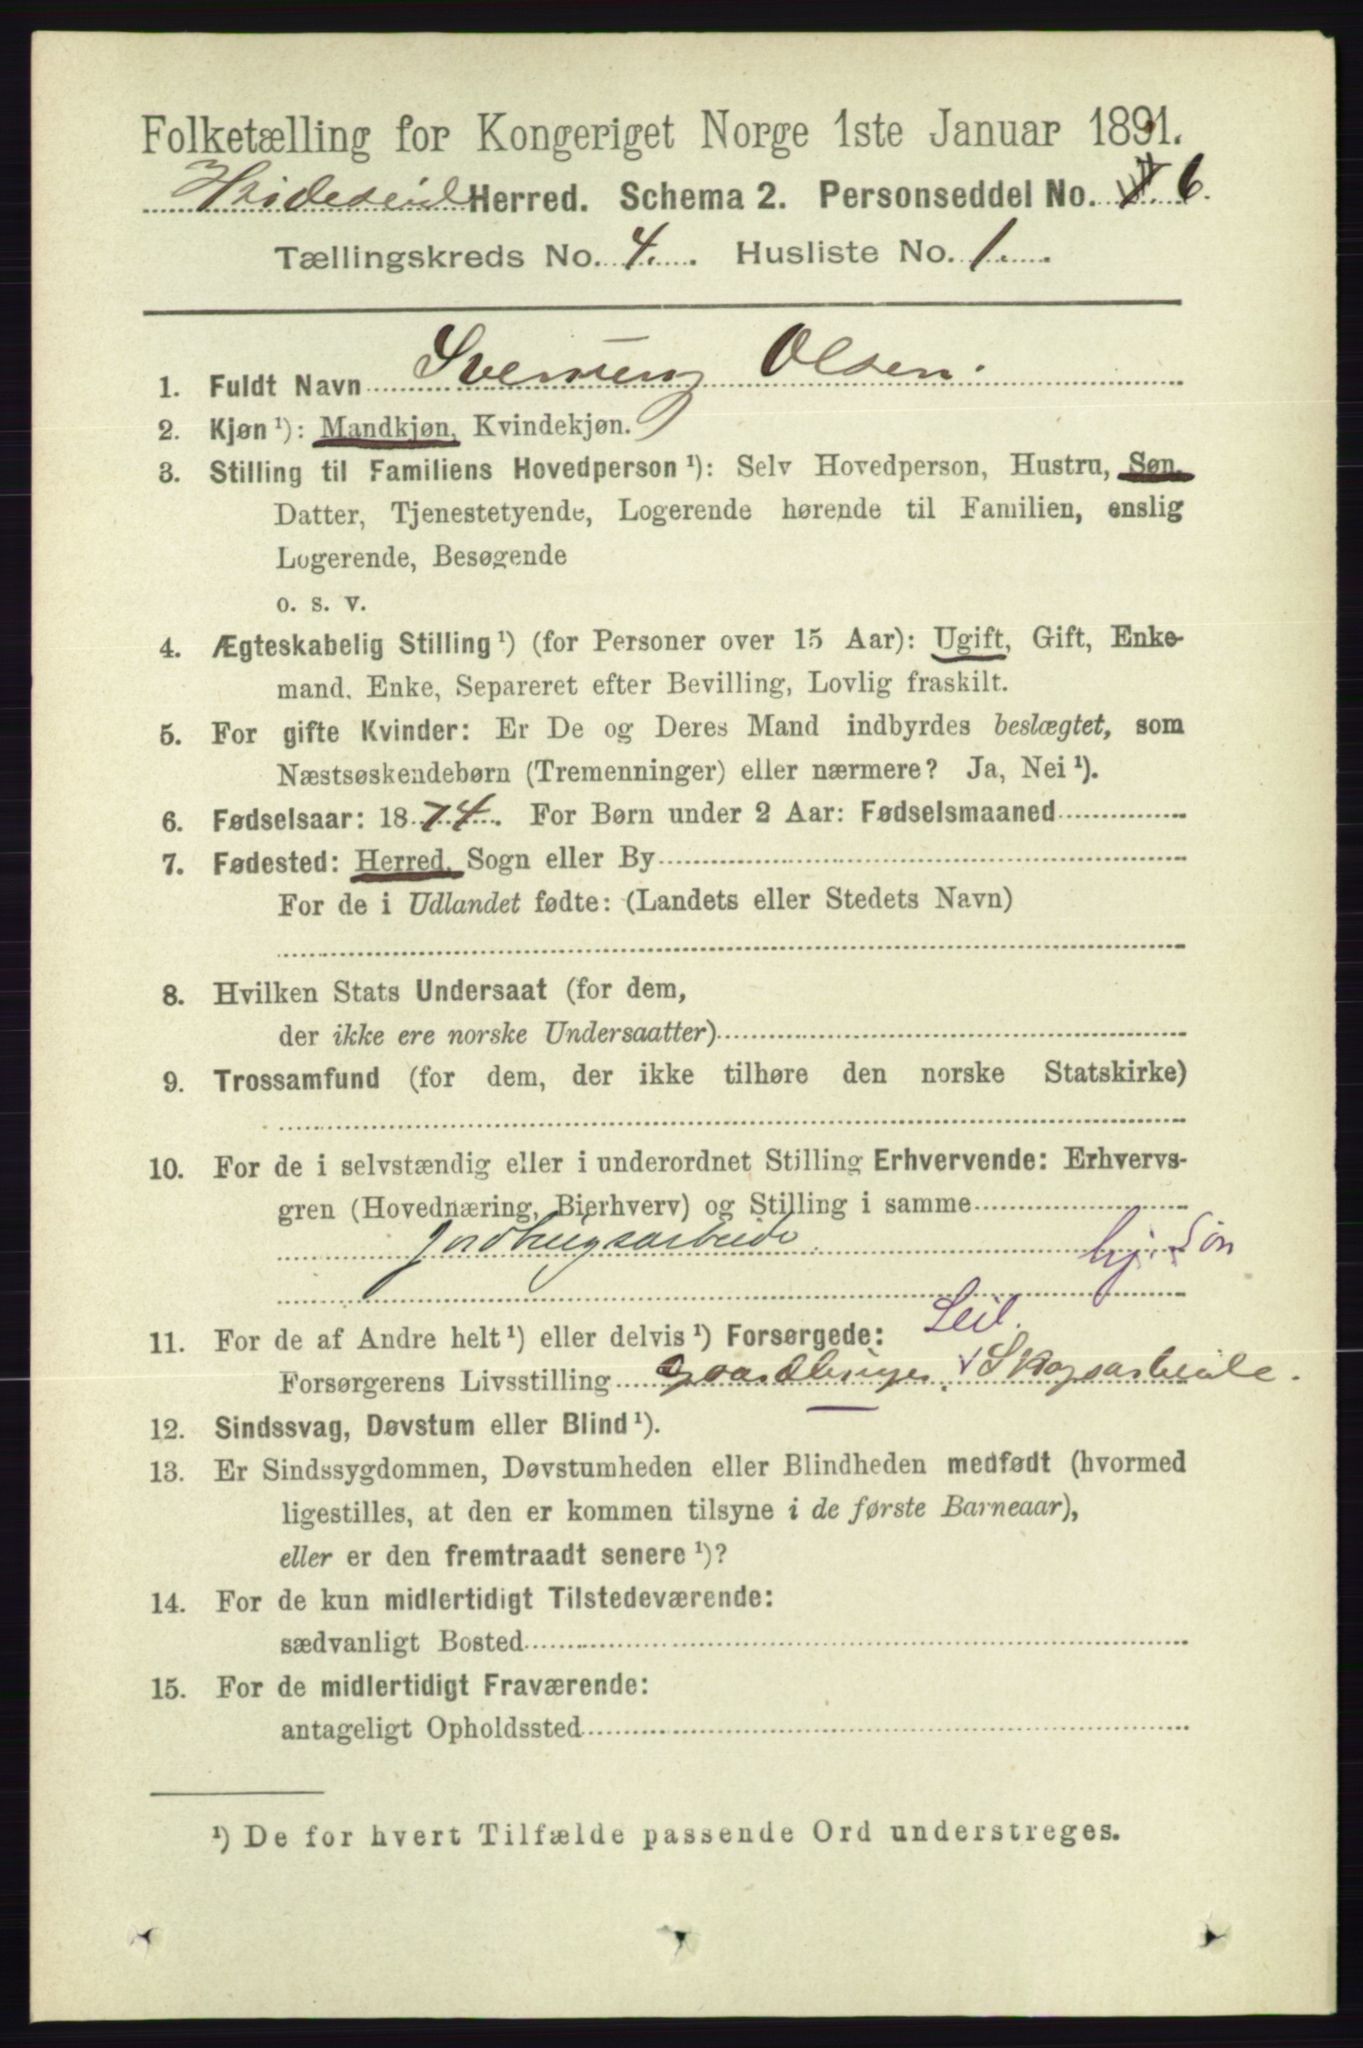 Folketælling for Kongeriget Norge 1ste Januar 1891.
Hvideseid Herred. Schema 2. Personseddel No. 6.
Tællingskreds No. 4. Husliste No. 1.
1. Fuldt Navn Svenung Olsen.
2. Kjøn ¹): Mandkjøn, Kvindekjøn.
3. Stilling til Familiens Hovedperson ¹): Selv Hovedperson, Hustru, Søn,
Datter, Tjenestetyende, Logerende hørende til Familien, enslig
Logerende, Besøgende
o. s. v.
4. Ægteskabelig Stilling ¹) (for Personer over 15 Aar): Ugift, Gift, Enke-
mand, Enke, Separeret efter Bevilling, Lovlig fraskilt.
5. For gifte Kvinder: Er De og Deres Mand indbyrdes beslægtet, som
Næstsøskendebørn (Tremenninger) eller nærmere? Ja, Nei ¹).
6. Fødselsaar: 1874. For Børn under 2 Aar: Fødselsmaaned
7. Fødested: Herred, Sogn eller By
For de i Udlandet fødte: (Landets eller Stedets Navn)
8. Hvilken Stats Undersaat (for dem,
der ikke ere norske Undersaatter)
9. Trossamfund (for dem, der ikke tilhøre den norske Statskirke)
10. For de i selvstændig eller i underordnet Stilling Erhvervende: Erhvervs-
gren (Hovednæring, Bierhverv) og Stilling i samme
Jordbrugsarbeide hj. Søn
Leil.
11. For de af Andre helt ¹) eller delvis ¹) Forsørgede:
Forsørgerens Livsstilling Gaardbruger. Skogsarbeide.
12. Sindssvag, Døvstum eller Blind ¹).
13. Er Sindssygdommen, Døvstumheden eller Blindheden medfødt (hvormed
ligestilles, at den er kommen tilsyne i de første Barneaar),
eller er den fremtraadt senere ¹)?
14. For de kun midlertidigt Tilstedeværende:
sædvanligt Bosted
15. For de midlertidigt Fraværende:
antageligt Opholdssted
¹) De for hvert Tilfælde passende Ord understreges.